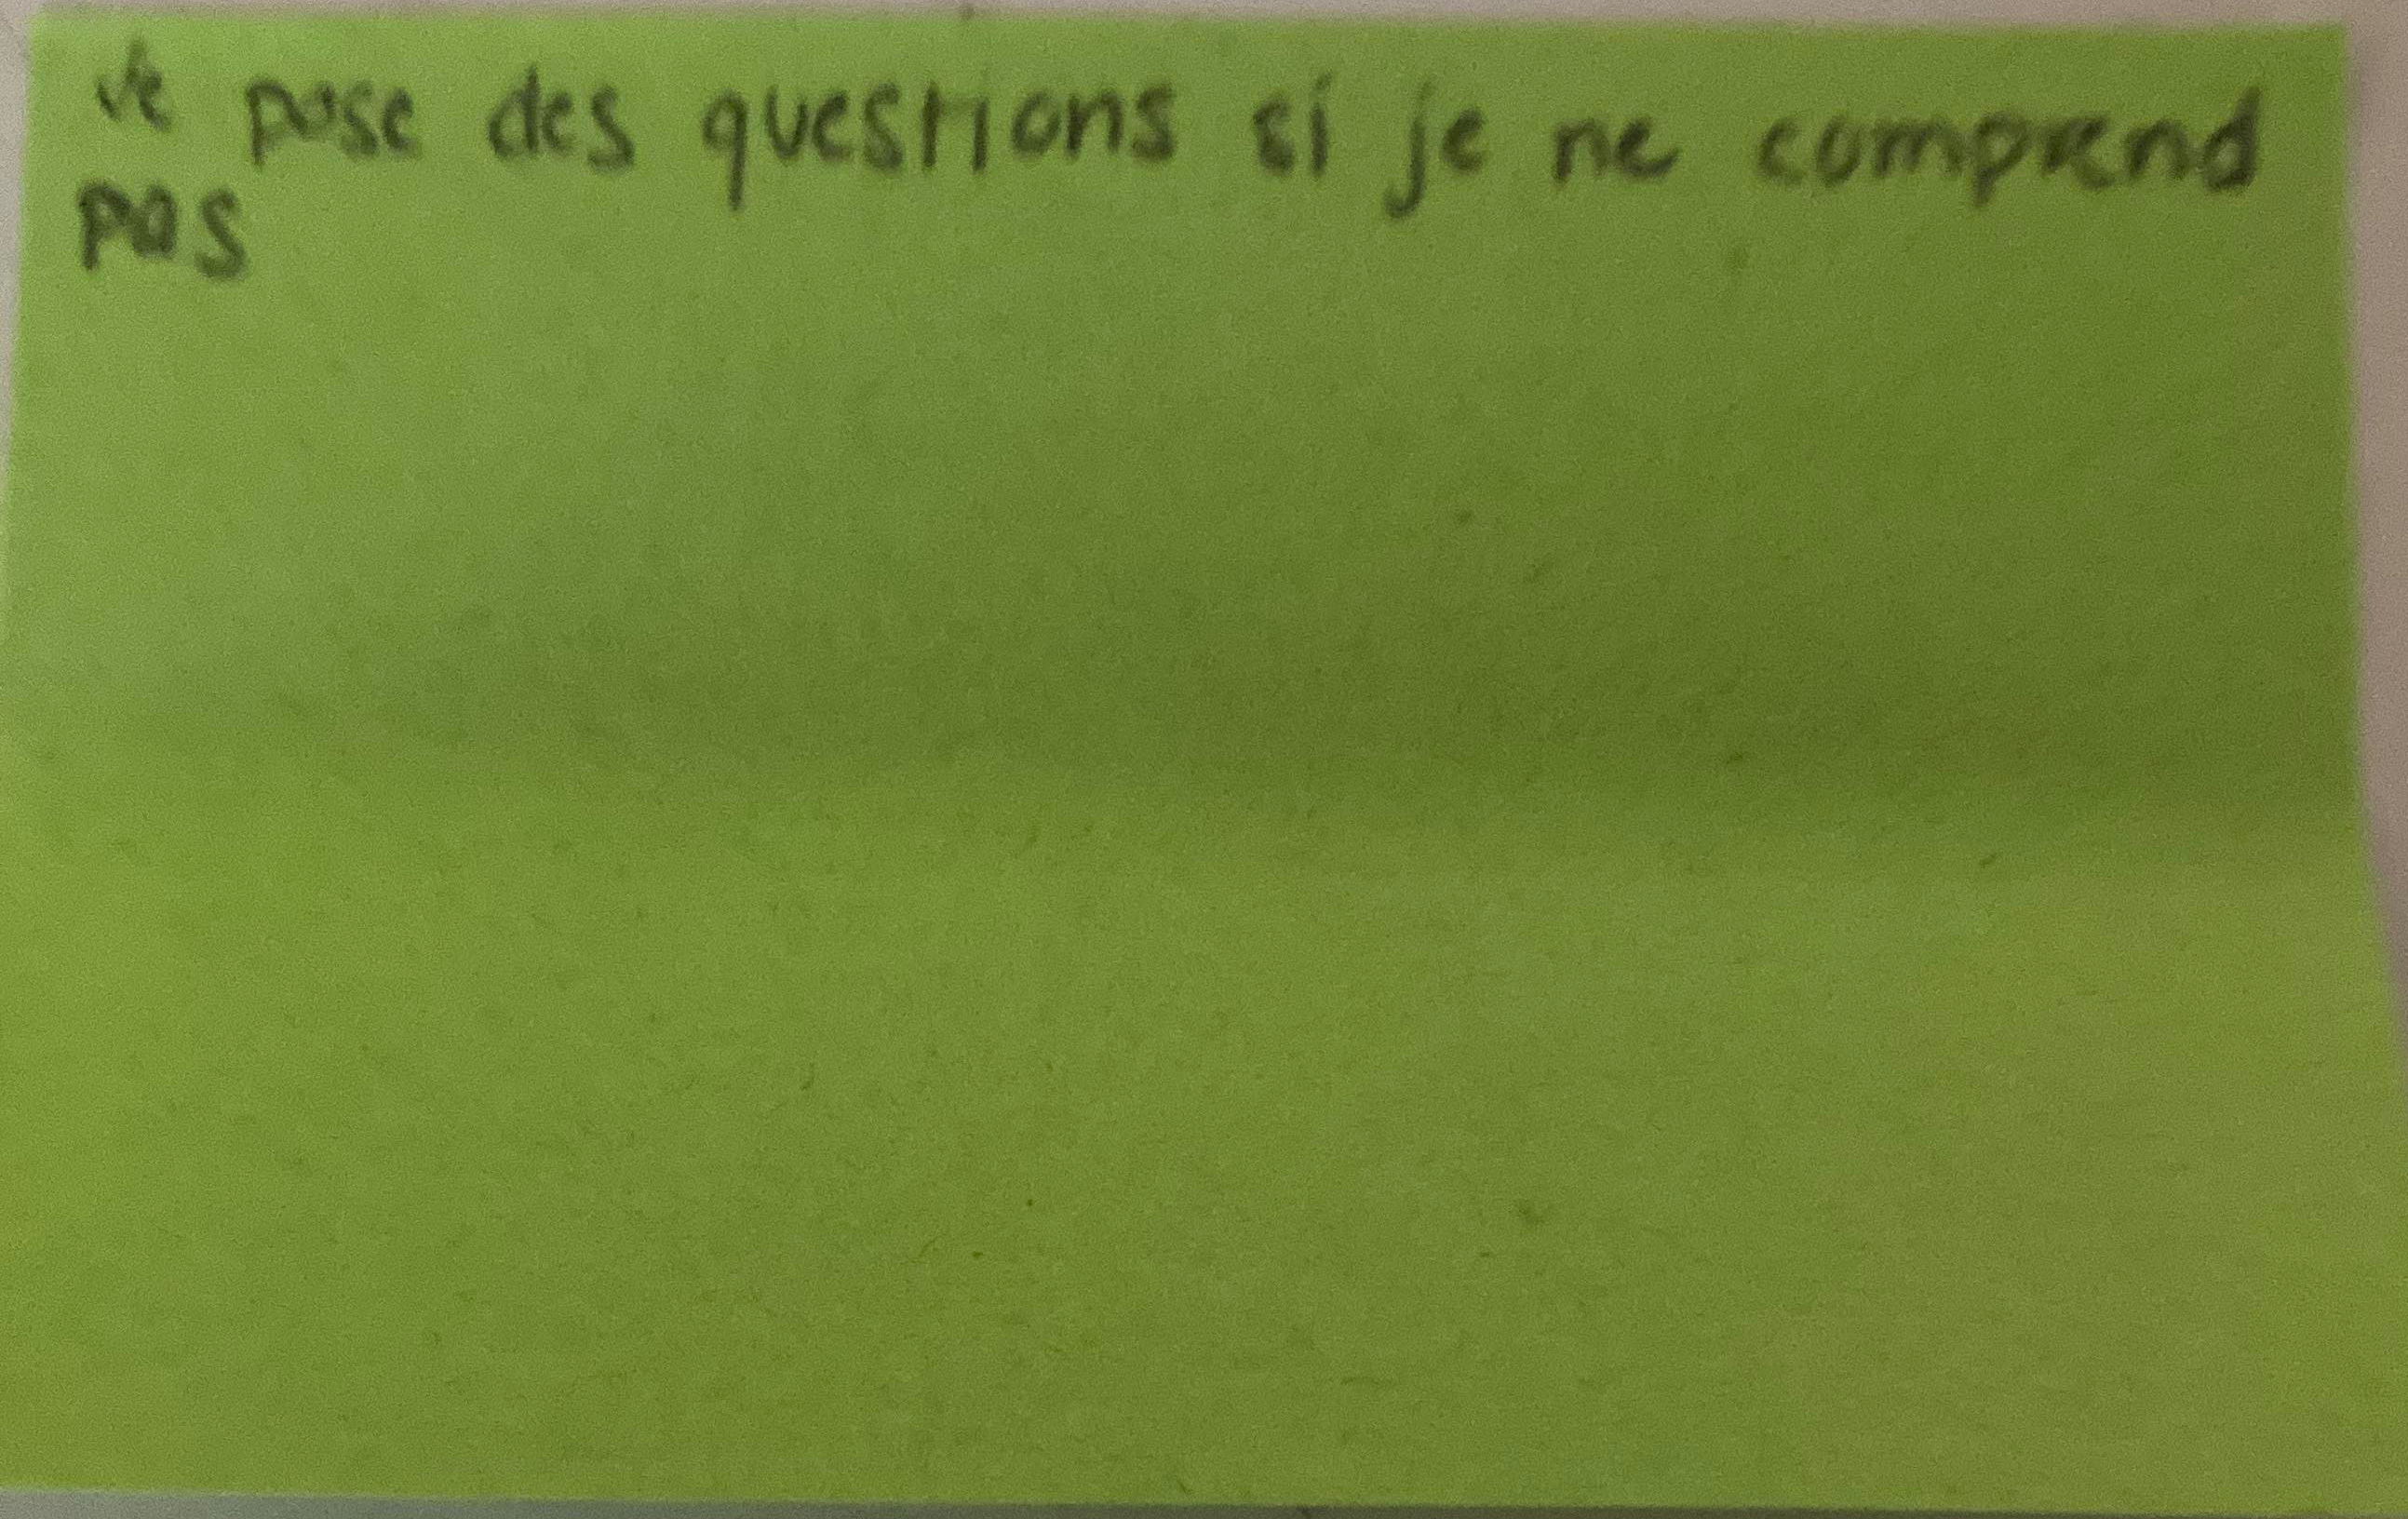 Je pose des questions si je ne comprend
pas